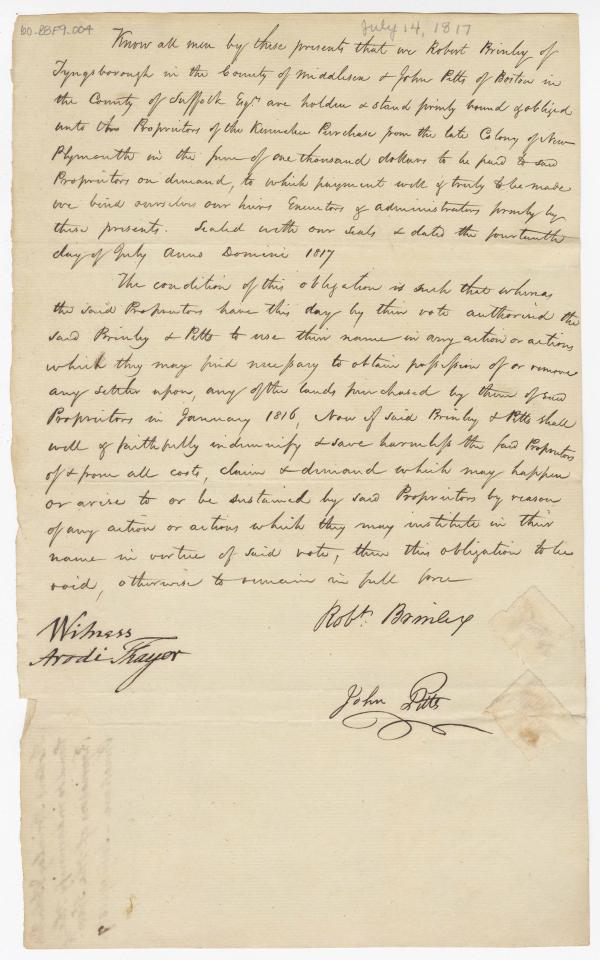 60-BBF9.004
July 14, 1817
Know all men by these presents that we Robert Brinley of
Tyngsborough in the County of Middlesex & John Pitts of Boston in
the County of Suffock Esqrs are holden & stand firmly bound & obliged
unto the Proprietors of the Kennebec Purchase from the late Colony of New
Plymouth in the sum of one thousand dollars to be paid to said
Proprietors on demand, to which payment well & truly to be made
we bind ourselves our heirs Executors & administrators firmly by
these presents. Sealed with our seals & dated the fourteenth
day of July Anno Domini 1817
The condition of this obligation is such that whereas
the said Proprietors have this day by their vote authorised the
said Brinley & Pitts to use their name in any action or actions
which they may find necessary to obtain possession of or remove
any settler upon, any of the lands purchased by them of said
Proprietors in January 1816, Now if said Brinley & Pitts shall
well & faithfully indemnify & save harmless the said Proprietors
of & from all costs, claim & demand which may happen
or arise to or be sustained by said Proprietors by reason
of any action or actions which they may institute in their
name in virtue of said vote, then this obligation to be
void, otherwise to remain in full force
Robt. Brinley
Witness
Arodi Thayer
John Pitts